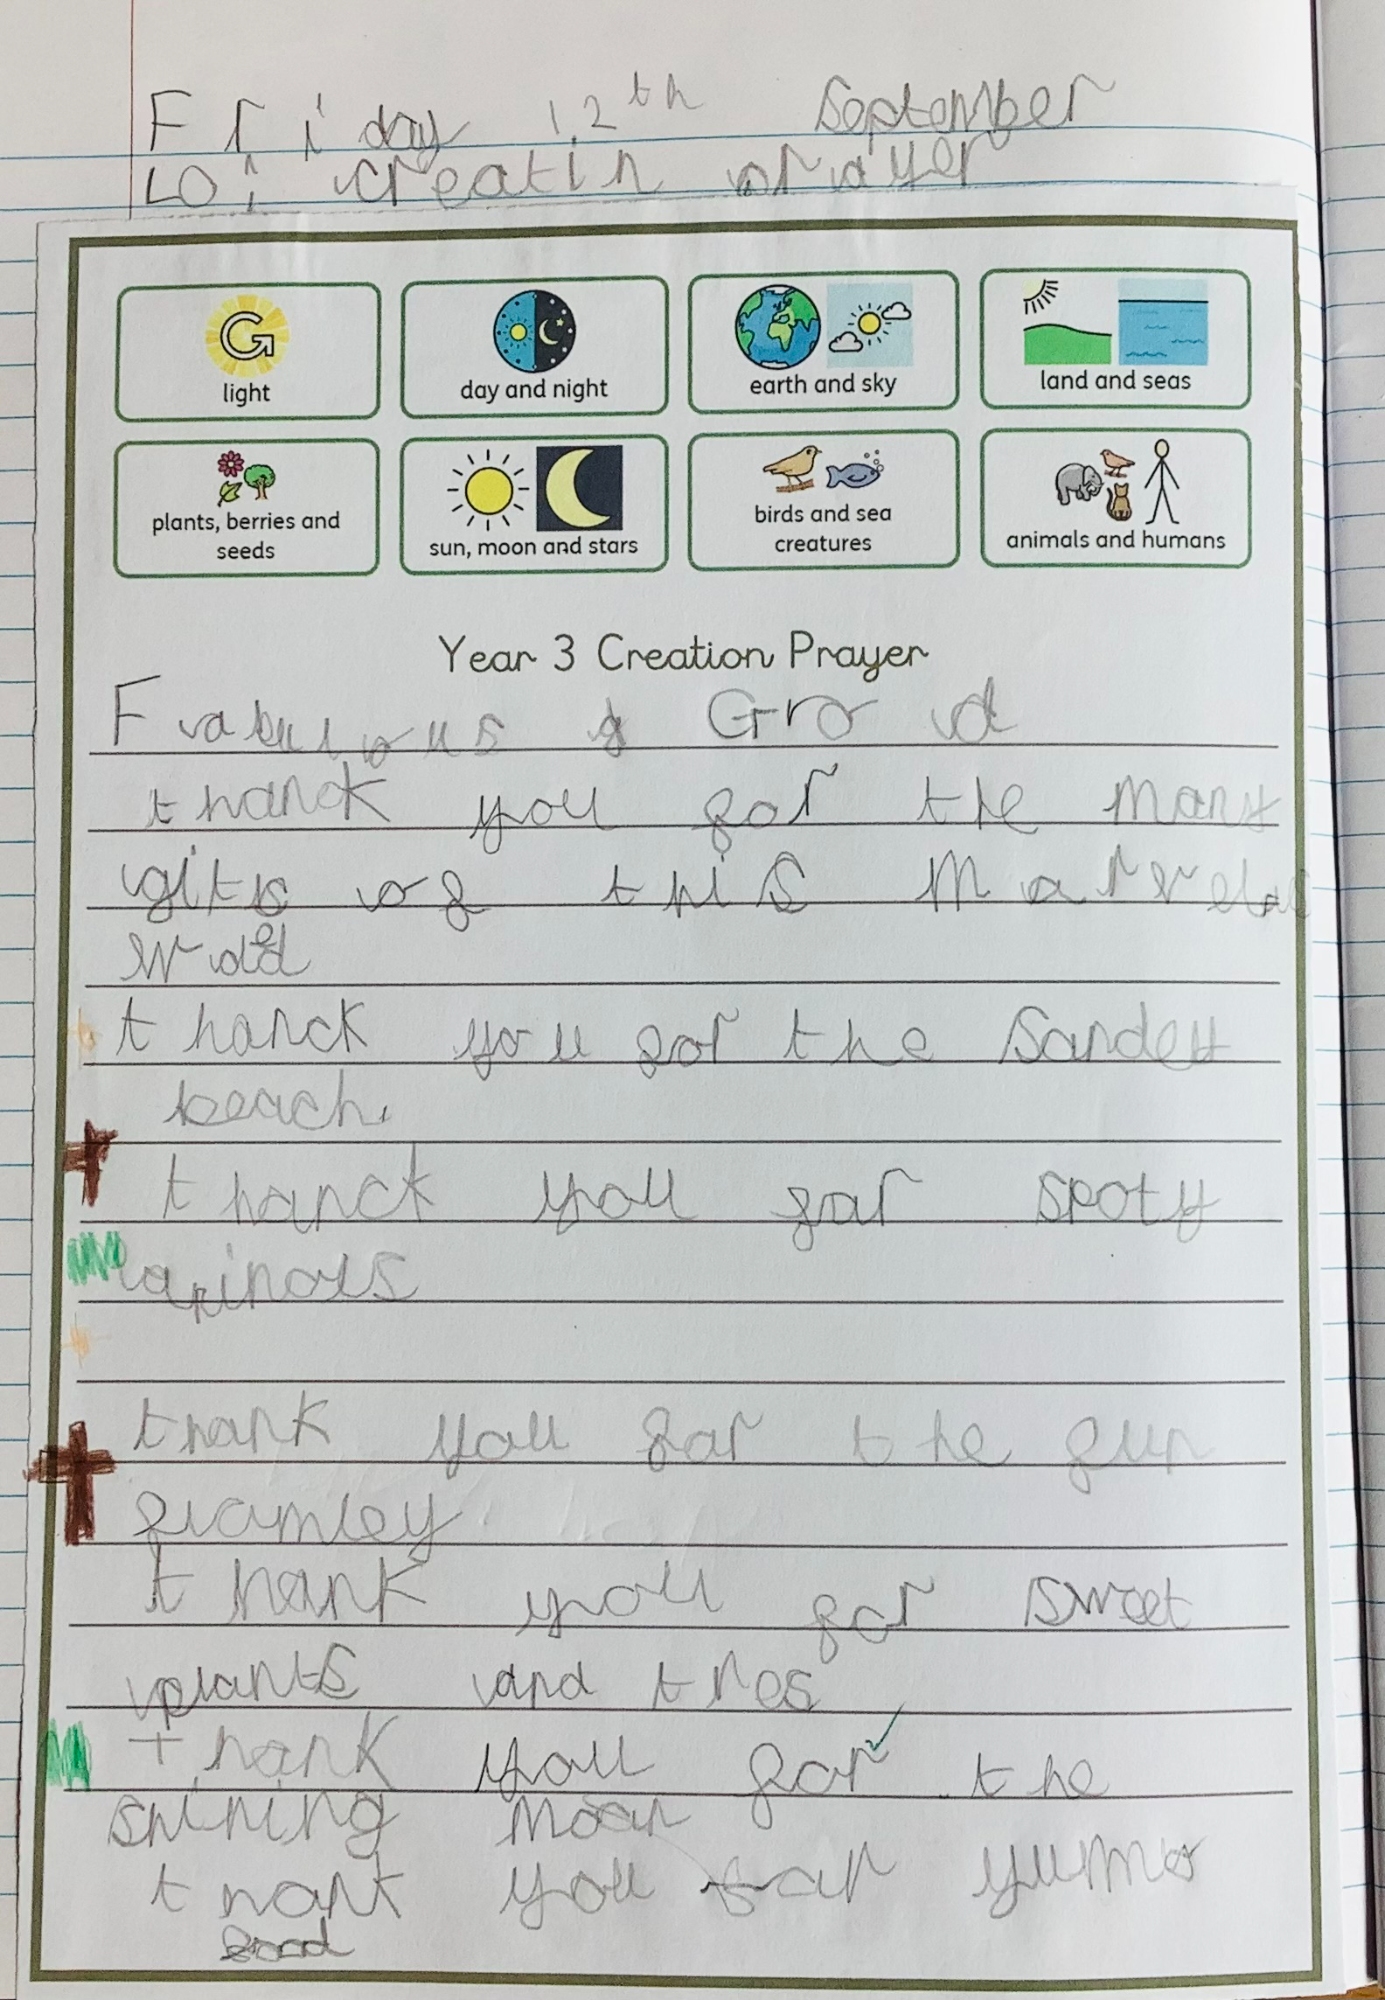 Friday 12th September
LO: creatin prayer
light
day and night
earth and sky
land and seas
plants, berries and
seeds
sun, moon and stars
birds and sea
creatures
animals and humans
Year 3 Creation Prayer
Fabulous Grod
thanck you for the many
gits of this
thanck you for the Sandey
beach.
thanck you for spoty
thank you for the fun
thank you for sweet
plants and tres
thank you for the
shining moon
thank you for
food